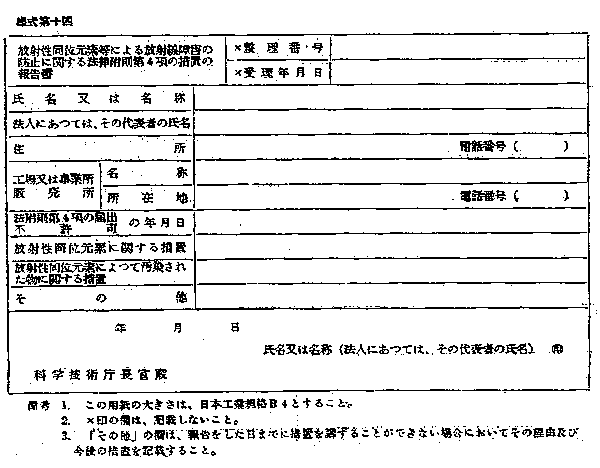 様式第十四
放射性同位元素等による放射線障害の
防止に関する法律附則第4項の措置の
報告書
×整理番号
×受理年月日
氏名又は名称
法人にあつては、その代表者の氏名
住所
電話番号（　　）
工場又は事業所
販売所
名称
所在地
電話番号（　　）
法附則第4項の届出
不許可
の年月日
放射性同位元素に関する措置
放射性同位元素によつて汚染され
た物に関する措置
その他
年　月　日
氏名又は名称（法人にあつては、その代表者の氏名）　㊞
科学技術庁長官殿
備考　1.　この用紙の大きさは、日本工業規格B4とすること。
2.　×印の欄は、記載しないこと。
3.　「その他」の欄は、報告をした日までに措置を講ずることができない場合においてその理由及び
今後の措置を記載すること。